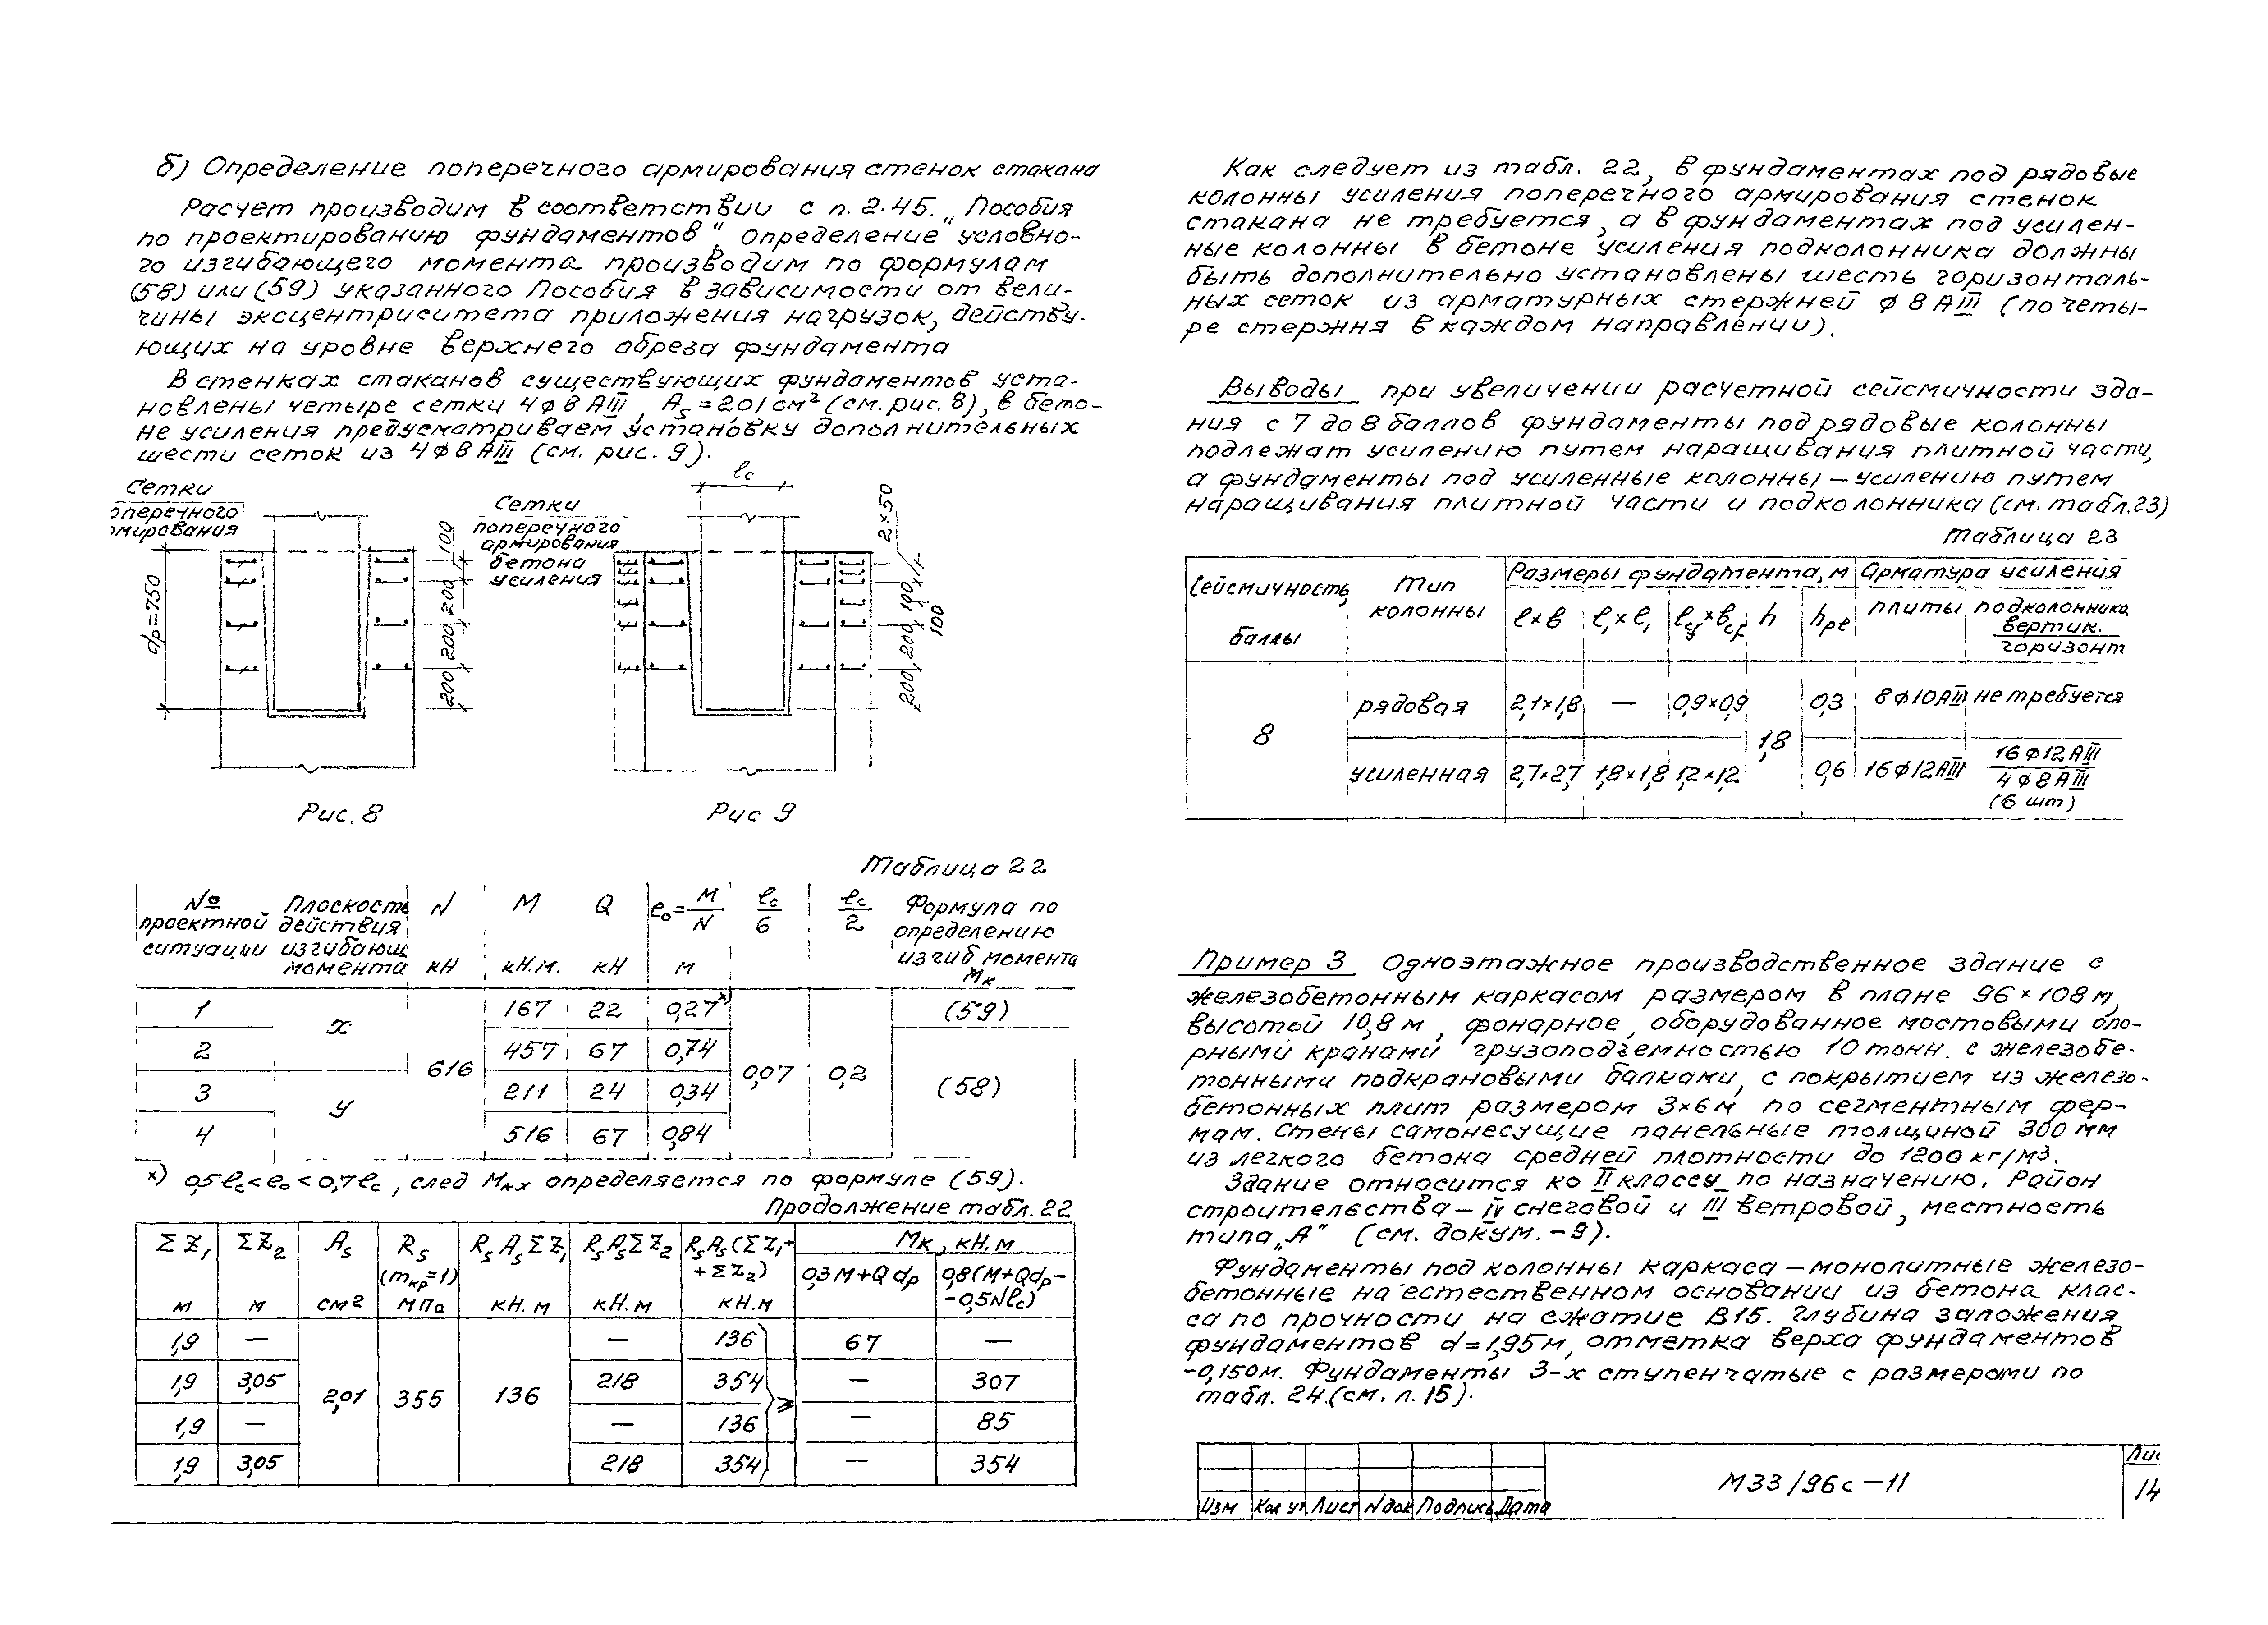 б) Определение поперечного армирования стенок стакана
Расчет производим в соответствии с п. 2.45. „Пособия
по проектированию фундаментов". Определение условно-
го изгибающего момента производим по формулам
(58) или (59) указанного Пособия в зависимости от вели-
чины эксцентриситета приложения нагрузок, действу-
ющих на уровне верхнего обреза фундамента
В стенках стаканов существующих фундаментов уста-
новлены четыре сетки 4ф8АIII, As=2,01 см² (см. рис. 8), в бето-
не усиления предусматриваем установку дополнительных
шести сеток из 4ф8АIII (см. рис. 9).
Сетки
оперечного
рмирования
dp=750
100
200
200
200
Рис. 8
Сетки
поперечного
армирования
бетона
усиления
lc
2×50
100
100
200
200
Рис 9
Таблица 22
№ проектной ситуации Плоскость действия изгибающ момента N кН M кН.м. Q кН e₀=M/N м lc/6 lc/2 Формула по определению изгиб момента Мк
1 x 616 167 22 0,27ˣ⁾ 0,07 0,2 (59)
2 457 67 0,74 (58)
3 y 211 24 0,34
4 516 67 0,84
х) 0,5lc<e₀<0,7lc, след Мкх определяется по формуле (59).
Продолжение табл. 22
ΣZ₁ м ΣZ₂ м As см² Rs (mкр=1) МПа RsAsΣZ₁ кН.м RsAsΣZ₂ кН.м RsAs(ΣZ₁+ +ΣZ₂) кН.м Мк, кН.м
0,3М+Qdp 0,8(М+Qdp- -0,5Nlc)
1,9 — 2,01 355 136 — 136 ⩾ 67 —
1,9 3,05 218 354 — 307
1,9 — — 136 — 85
1,9 3,05 218 354 — 354
Как следует из табл. 22, в фундаментах под рядовые
колонны усиления поперечного армирования стенок
стакана не требуется, а в фундаментах под усилен-
ные колонны в бетоне усиления подколонника должны
быть дополнительно установлены шесть горизонталь-
ных сеток из арматурных стержней ф 8 АIII (по четы-
ре стержня в каждом направлении).
Выводы при увеличении расчетной сейсмичности зда-
ния с 7 до 8 баллов фундаменты под рядовые колонны
подлежат усилению путем наращивания плитной части,
а фундаменты под усиленные колонны — усилению путем
наращивания плитной части и подколонника (см. табл.23)
Таблица 23
Сейсмичность, баллы Тип колонны Размеры фундамента, м Арматура усиления
l×b l₁×l₁ lcf×bcf h hpl плиты подколонника вертик. горизонт
8 рядовая 2,1×1,8 — 0,9×0,9 1,8 0,3 8ф10АIII не требуется
усиленная 2,7×2,7 1,8×1,8 1,2×1,2 0,6 16ф12АIII 16ф12АIII
4ф8АIII
(6 шт)
Пример 3 Одноэтажное производственное здание с
железобетонным каркасом размером в плане 96×108 м,
высотой 10,8 м, фонарное, оборудованное мостовыми опо-
рными кранами грузоподъемностью 10 тонн. с железобе-
тонными подкрановыми балками, с покрытием из железо-
бетонных плит размером 3×6м по сегментным фер-
мам. Стены самонесущие панельные толщиной 300 мм
из легкого бетона средней плотности до 1200 кг/м3.
Здание относится ко II классу по назначению. Район
строительства — IV снеговой и III ветровой, местность
типа „А" (см. докум. -9).
Фундаменты под колонны каркаса — монолитные железо-
бетонные на естественном основании из бетона клас-
са по прочности на сжатие В15. Глубина заложения
фундаментов d=1,95м, отметка верха фундаментов
-0,150м. Фундаменты 3-х ступенчатые с размерами по
табл. 24.(см. л. 15).
Изм Кол уч Лист Nдок Подпись Дата
М33/96с-11
Лис
14